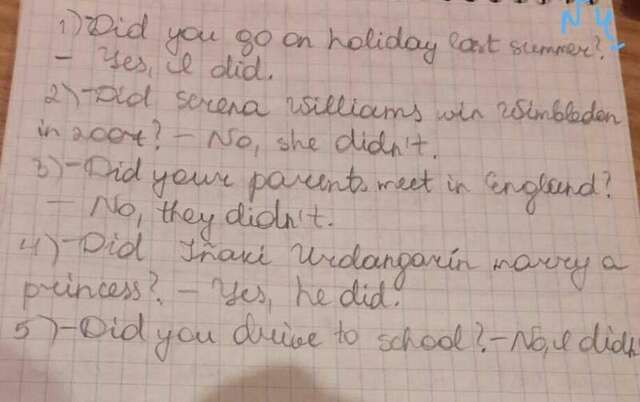 N 4
1) Did you go on holiday last summer?
- Yes, I did.
2) - Did Serena Williams win Wimbledon
in 2004? - No, she didn't.
3) - Did your parents meet in England?
- No, they didn't.
4) - Did Iñaki Urdangarín marry a
princess? - Yes, he did.
5) - Did you drive to school? - No, I didn